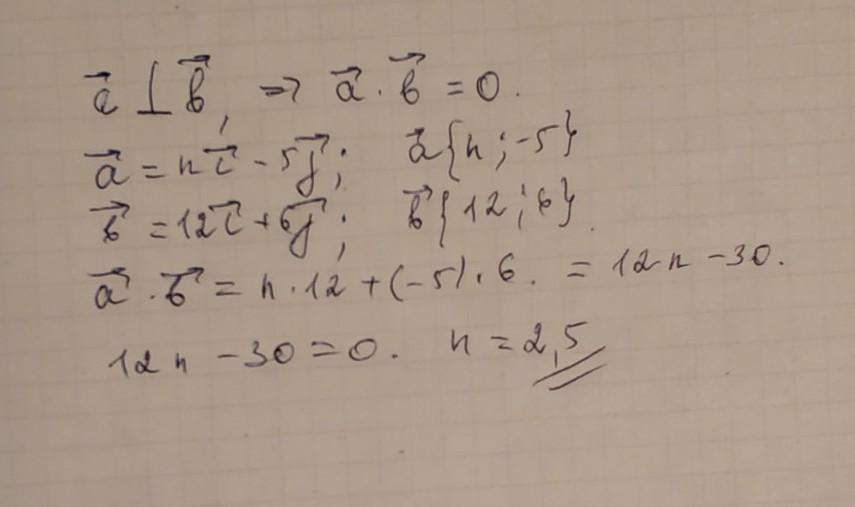 a⃗ ⊥ b⃗, ⇒ a⃗ · b⃗ = 0.
a⃗ = n i⃗ - 5 j⃗; a⃗ {n; -5}
b⃗ = 12 i⃗ + 6 j⃗; b⃗ {12; 6}.
a⃗ · b⃗ = n · 12 + (-5) · 6. = 12n - 30.
12n - 30 = 0. n = 2,5